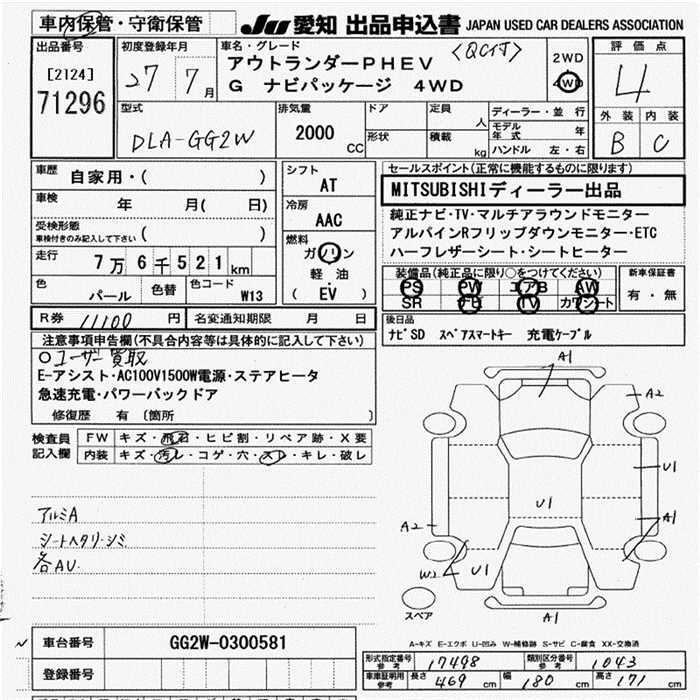 車内保管・守衛保管
JU 愛知 出品申込書 JAPAN USED CAR DEALERS ASSOCIATION
出品番号
[2124]
71296
初度登録年月
27 7月
車名・グレード
アウトランダーPHEV <QCイチ>
G ナビパッケージ 4WD
2WD
4WD
評価点
4
外装 内装
B C
型式
DLA-GG2W
排気量
2000 CC
ドア
形状
定員 人
積載 kg
ディーラー・並行
モデル年式 年
ハンドル 左・右
車歴 自家用・( )
車検 年 月( 日)
受検形態
車検付きのみ記入して下さい ( )
走行 7万6千521km
色 パール
色替
色コード W13
シフト
AT
冷房
AAC
燃料
ガソリン
軽油
( EV )
セールスポイント(正常に機能するものに限ります)
MITSUBISHIディーラー出品
純正ナビ・TV・マルチアラウンドモニター
アルパインRフリップダウンモニター・ETC
ハーフレザーシート・シートヒーター
装備品(純正品に限り○をつけてください)
PS PW エアB AW
SR ナビ TV カワシート
新車保証書
有・無
R券 11100 円
名変通知期限 月 日
後日品
ナビSD スペアスマートキー 充電ケーブル
注意事項申告欄(不具合内容等は具体的に記入して下さい)
○ユーザー買取
E-アシスト・AC100V1500W電源・ステアヒータ
急速充電・パワーバックドア
修復歴 有〔箇所 〕
検査員記入欄
FW キズ・飛石・ヒビ割・リペア跡・X要
内装 キズ・汚レ・コゲ・穴・スレ・キレ・破レ
アルミA
シートヘタリ・シミ
各AU
A1
A2
U1
A1
U1
A2
W2
U1
A1
スペア
A-キズ E-エクボ U-凹み W-補修跡 S-サビ C-腐食 XX-交換済
車台番号 GG2W-0300581
登録番号
形式指定番号 参考 17498
類別区分番号 参考 1043
車庫証明用 参考 長さ 469 cm 幅 180 cm 高さ 171 cm